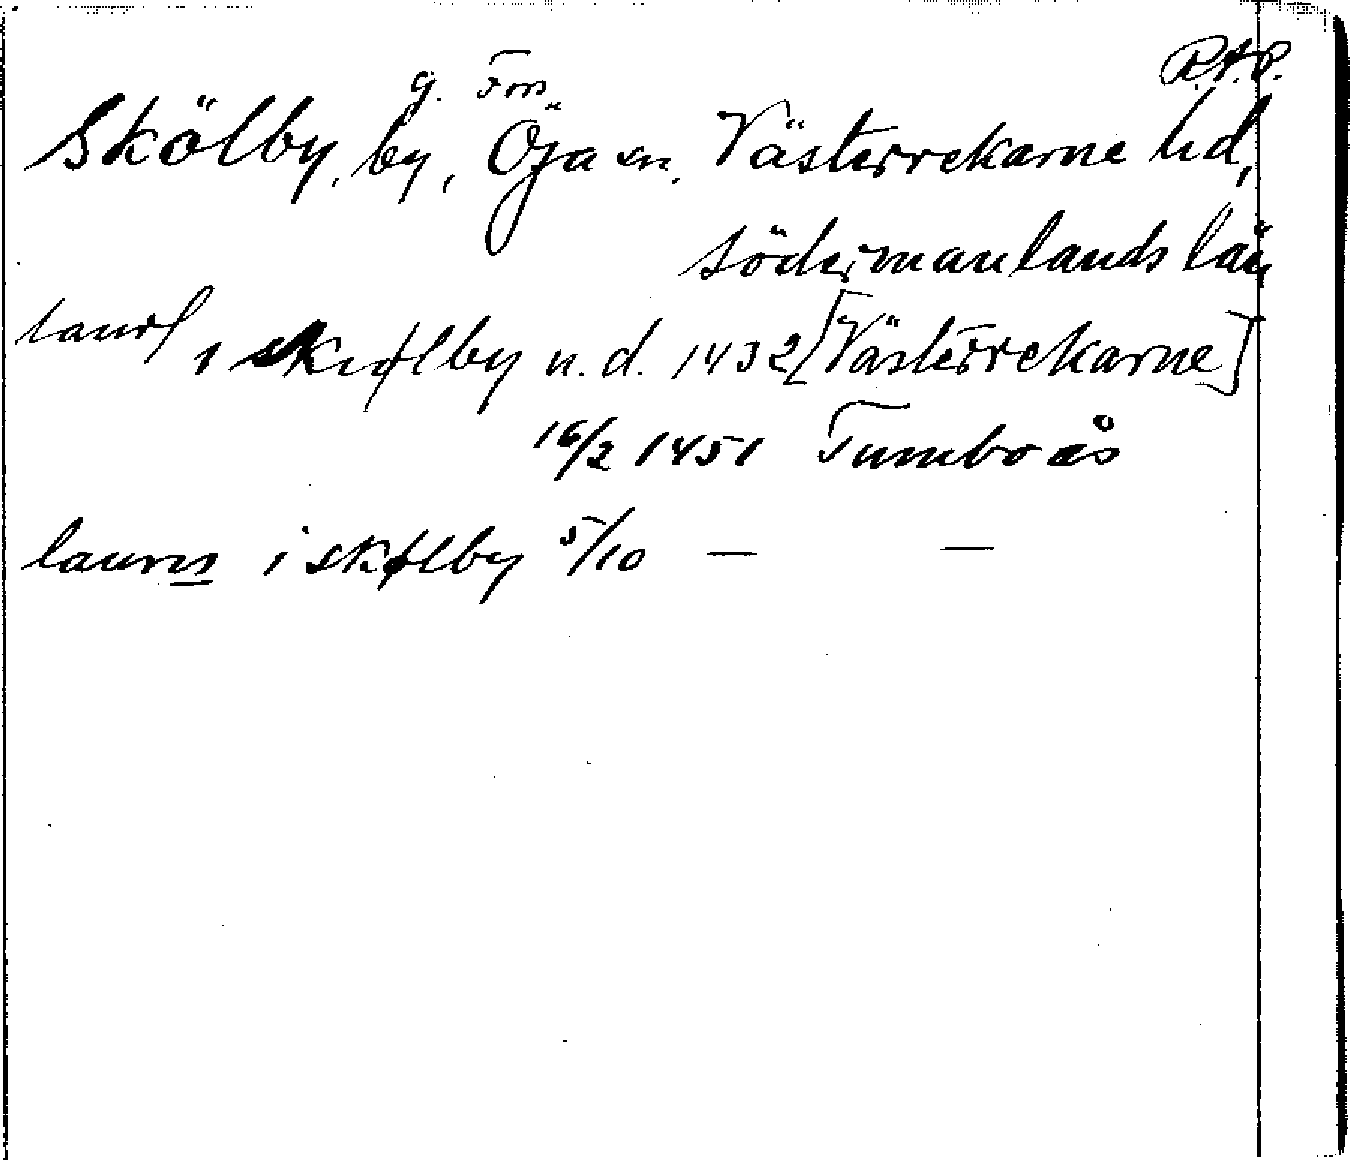 R.A.P.
g. Fors
Skölby, by, Öja sn. Västerrekarne hd,
Södermanlands län
laur i skiølby u.d. 1432 [Västerrekarne]
16/2 1451 Tumbo ås
lauris i skølby 5/10 — —